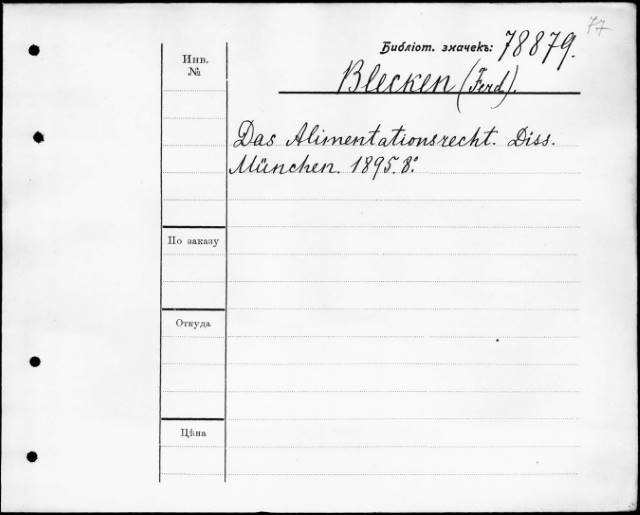 77
Библіот. значекъ: 78879.
Инв.
№
Blecken (Ferd.).
Das Alimentationsrecht. Diss.
München. 1895. 8º.
По заказу
Откуда
Цѣна